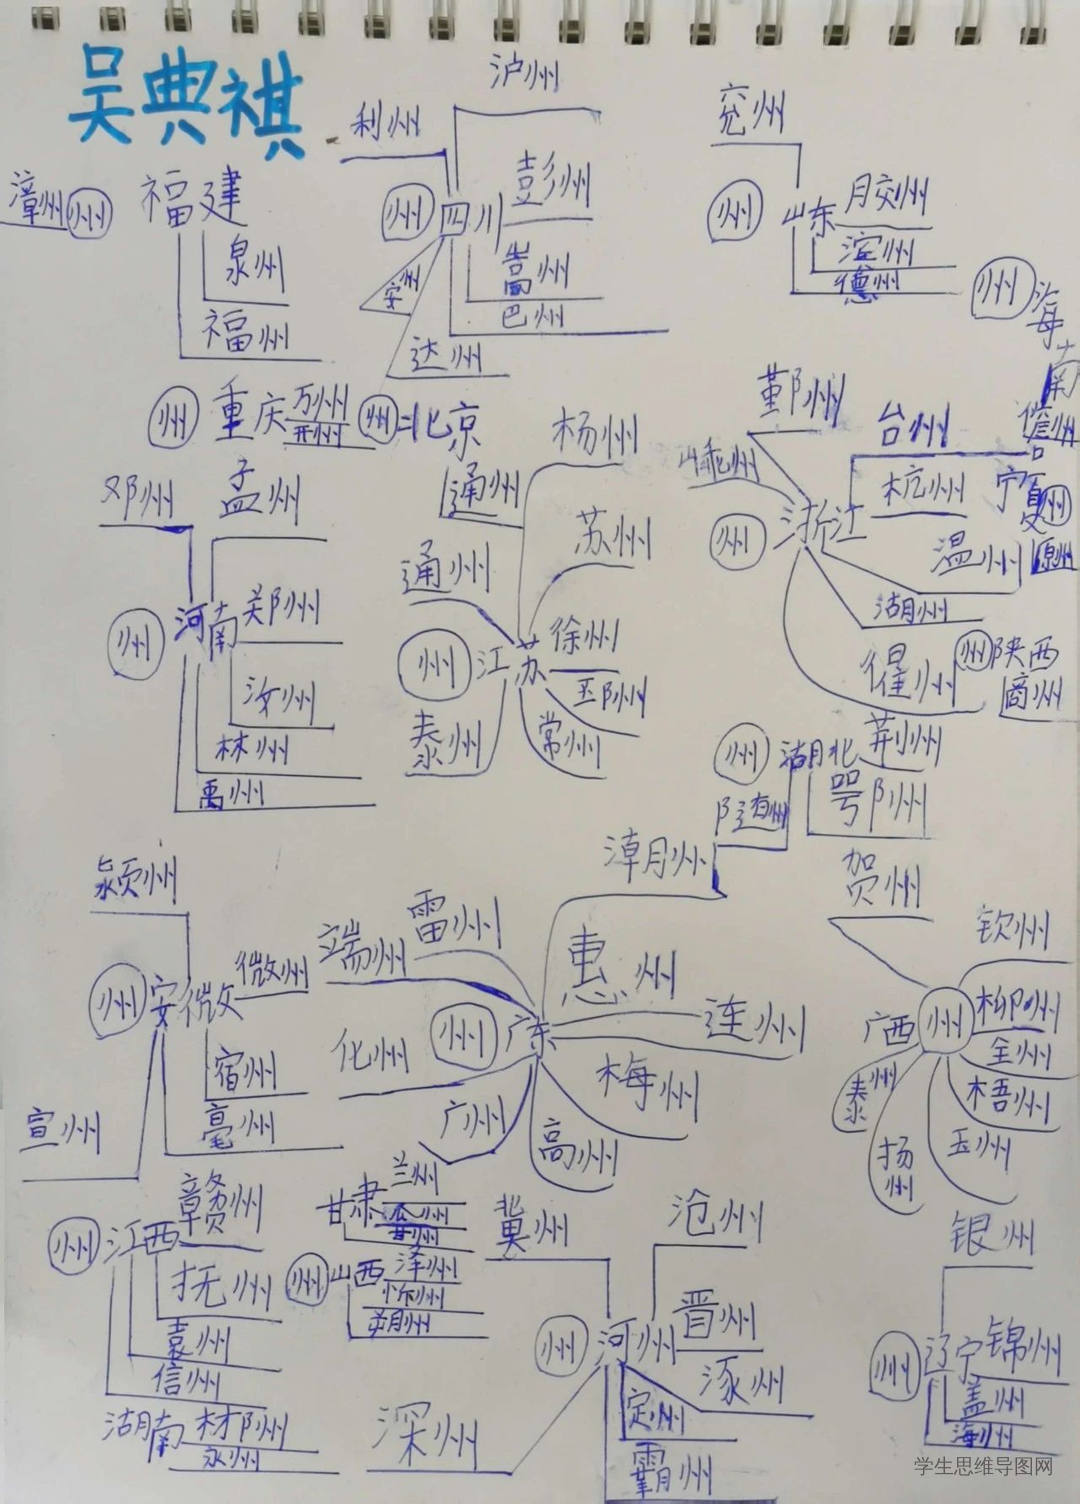 吴典祺
漳州
州
福建
泉州
福州
利州
泸州
州
四川
彭州
嵩州
巴州
安州
达州
兖州
州
山东
月交州
滨州
德州
州
海南
儋州
州
重庆
万州
开州
州
北京
通州
邓州
孟州
州
河南
郑州
汝州
林州
禹州
杨州
苏州
通州
州
江苏
徐州
邳州
常州
泰州
鄞州
台州
杭州
温州
湖州
州
浙江
宁夏
州
原州
州
陕西
商州
州
湖北
荆州
鄂州
颍州
州
安微
微州
宿州
亳州
宣州
潭月州
雷州
端州
惠州
连州
州
广东
化州
梅州
广州
高州
贺州
钦州
广西
州
柳州
全州
梧州
玉州
扬州
泰州
赣州
州
江西
抚州
袁州
信州
湖南
永州
甘肃
兰州
瓜州
甘州
州
山西
泽州
忻州
朔州
冀州
沧州
州
河州
晋州
涿州
定州
霸州
深州
银州
州
辽宁
锦州
盖州
海州
学生思维导图网